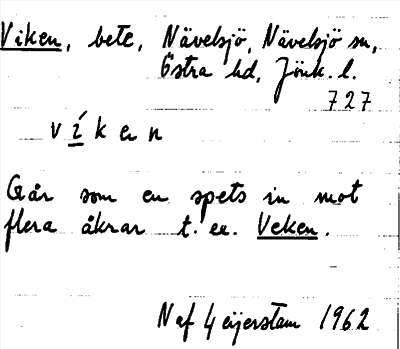 Viken, bete, Nävelsjö, Nävelsjö sn,
Östra hd, Jönk. l.
727
v í k e n
Går som en spets in mot
flera åkrar t. ex. Veken.
N af Geijerstam 1962